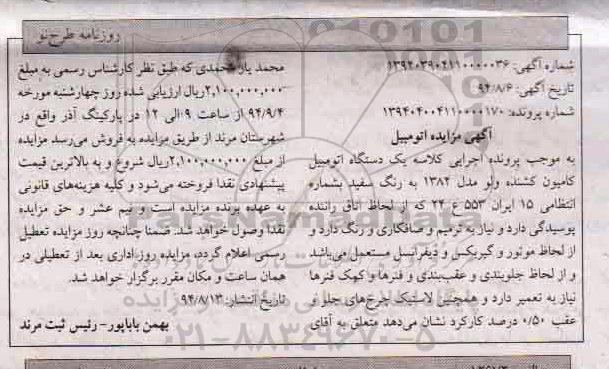 روزنامه طرح نو
شماره آگهی: ۱۳۹۴۰۳۹۰۴۱۱۰۰۰۰۰۳۶
تاریخ آگهی: ۹۴/۸/۶
شماره پرونده: ۱۳۹۴۰۴۰۰۴۱۱۰۰۰۰۱۷۰
آگهی مزایده اتومبیل
به موجب پرونده اجرایی کلاسه یک دستگاه اتومبیل
کامیون کشنده ولو مدل ۱۳۸۲ به رنگ سفید بشماره
انتظامی ۱۵ ایران ۵۵۳ ع ۲۴ که از لحاظ اتاق راننده
پوسیدگی دارد و نیاز به ترمیم و صافکاری و رنگ دارد و
از لحاظ موتور و گیربکس و دیفرانسل مستعمل می‌باشد
و از لحاظ جلوبندی و عقب‌بندی و فنرها و کمک فنرها
نیاز به تعمیر دارد و همچنین لاستیک چرخ‌های جلو و
عقب ۰/۵۰ درصد کارکرد نشان می‌دهد متعلق به آقای
محمد یارمحمدی که طبق نظر کارشناس رسمی به مبلغ
۲,۱۰۰,۰۰۰,۰۰۰ریال ارزیابی شده روز چهارشنبه مورخه
۹۴/۹/۴ از ساعت ۹ الی ۱۲ در پارکینگ آذر واقع در
شهرستان مرند از طریق مزایده به فروش می‌رسد مزایده
از مبلغ ۲,۱۰۰,۰۰۰,۰۰۰ریال شروع و به بالاترین قیمت
پیشنهادی نقدا فروخته می‌شود و کلیه هزینه‌های قانونی
به عهده برنده مزایده است و نیم عشر و حق مزایده
نقدا وصول خواهد شد. ضمنا چنانچه روز مزایده تعطیل
رسمی اعلام گردد، مزایده روز اداری بعد از تعطیلی در
همان ساعت و مکان مقرر برگزار خواهد شد.
تاریخ انتشار: ۹۴/۸/۱۳
بهمن باباپور- رئیس ثبت مرند
ParsNamadData
۰۲۱-۸۸۳۴۹۶۷۰-۵